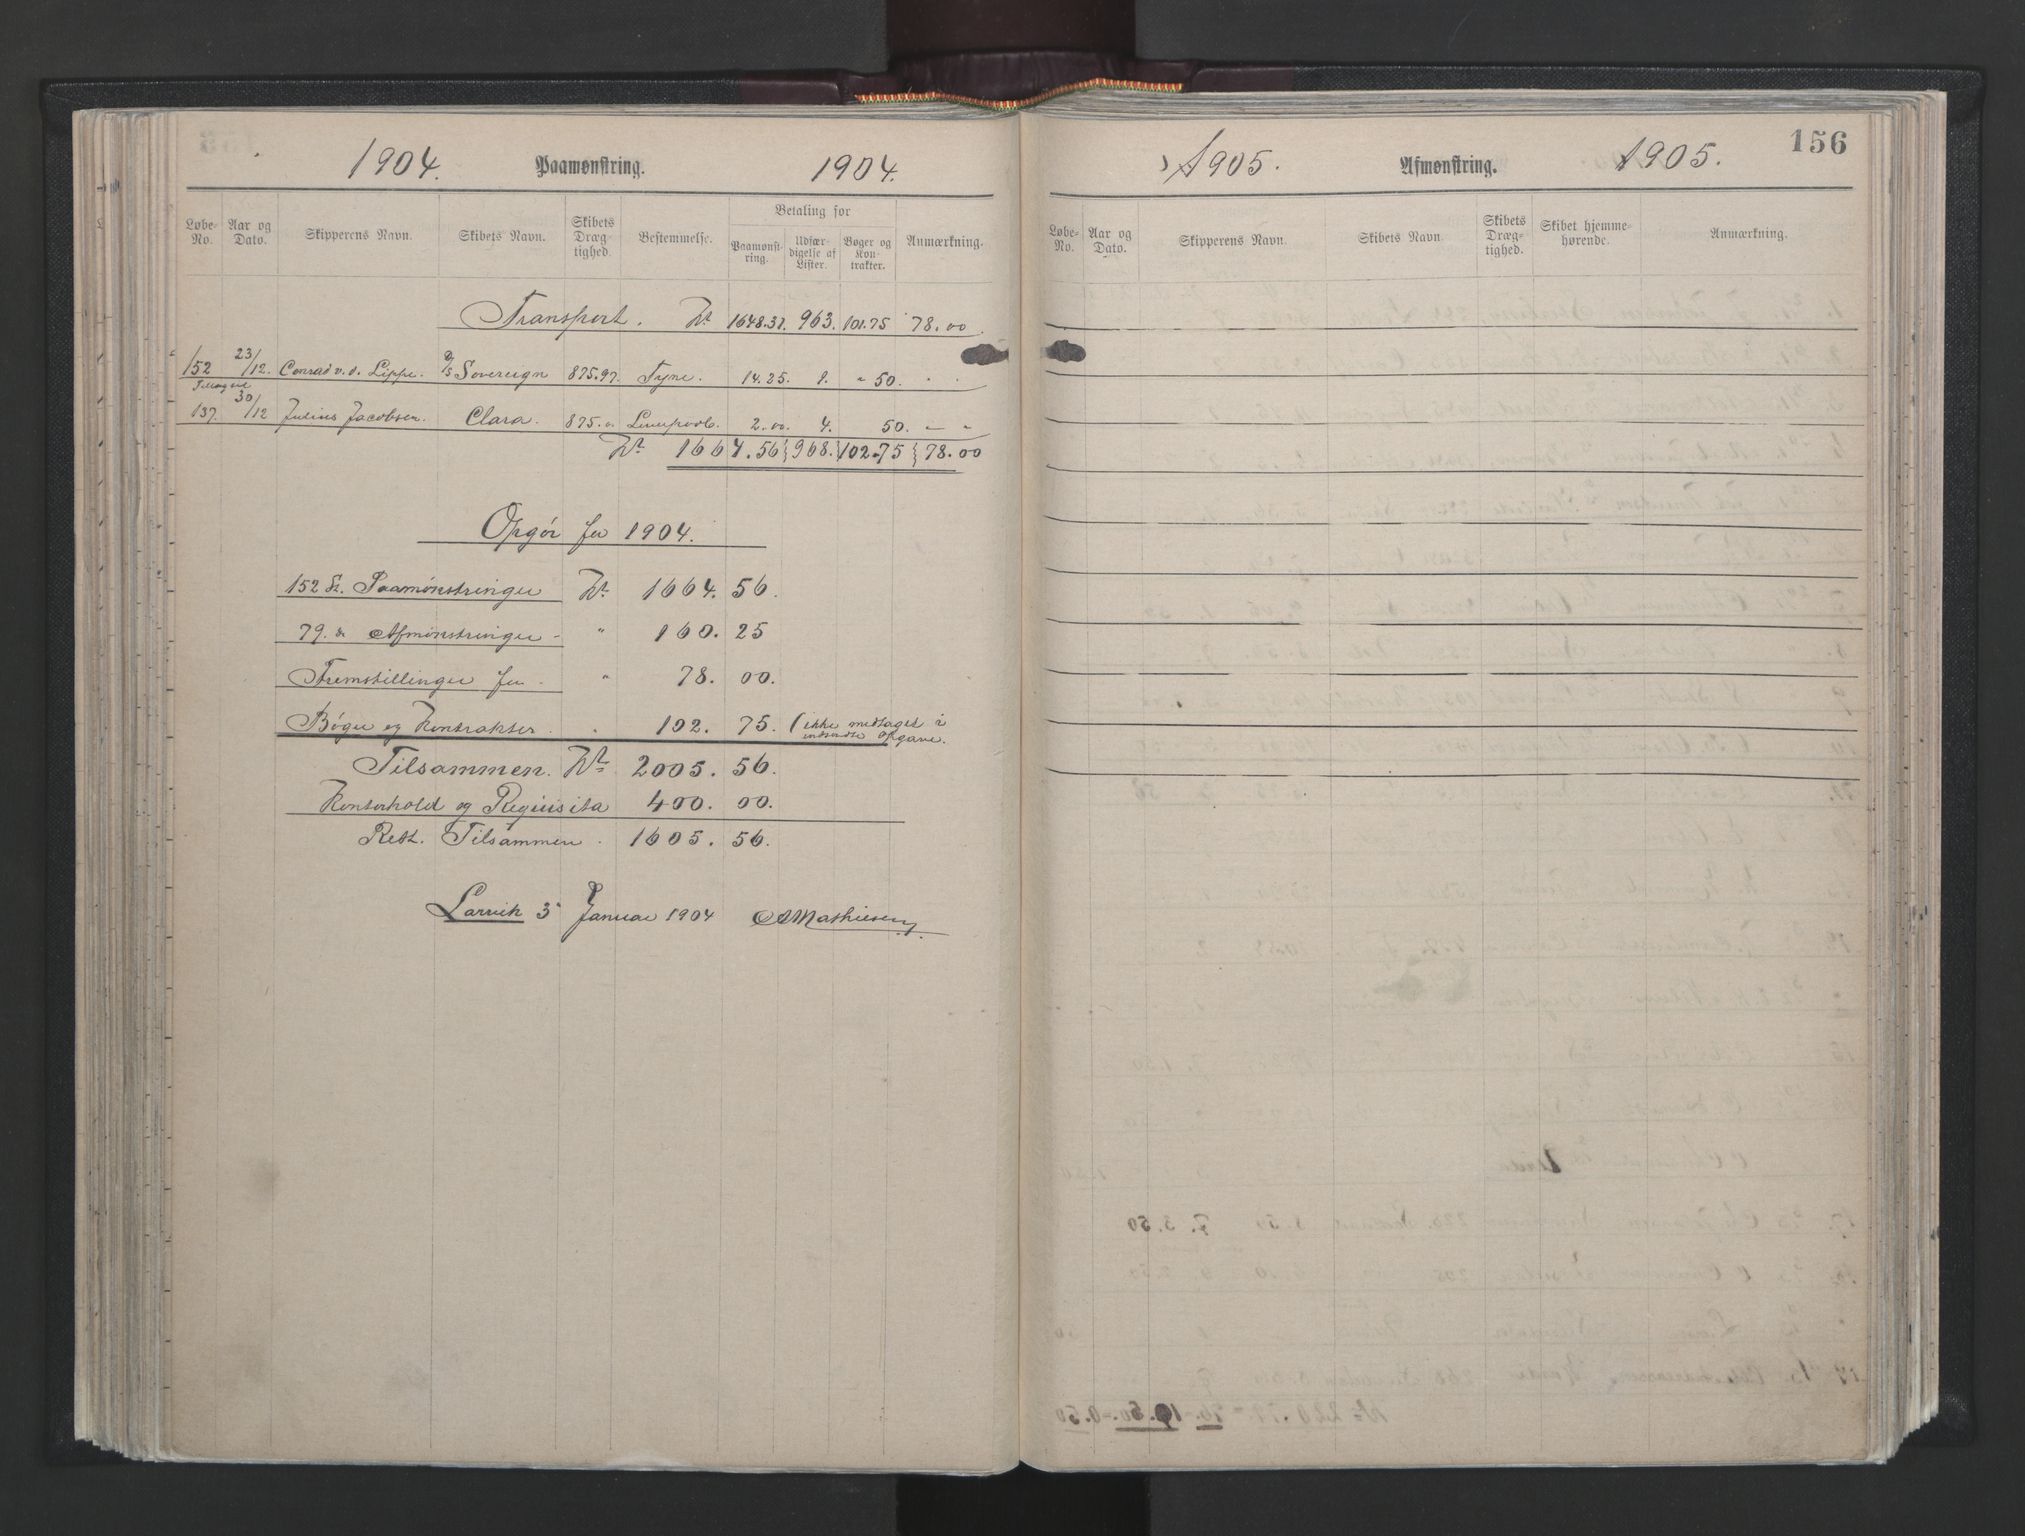 1904. Paamønstring. 1904.
Løbe-No. Aar og Dato. Skipperens Navn. Skibets Navn. Skibets Dræg-tighed. Bestemmelse. Betaling for Paamønst-ring. Udfær-digelse af Lister. Bøger og Kon-trakter. Anmærkning.
Transport. Kr 1648.31. 963. 101.75 78.00.
152 23/12. Conrad v. d. Lippe. D/S Sovereign 875.97. Tyne. 14.25. 1. " 50. " "
137. 30/12 Julius Jacobsen. Clara. 875. Liverpool. 2.00. 4. 50. " "
Kr 1664.56 968. 102.75 78.00
Opgør for 1904.
152 St. Paamønstringer Kr. 1664. 56.
79. " Afmønstringer - " 160. 25
Fremstillinger for - " 78. 00.
Bøger og Kontrakter. " 102. 75. (ikke medtaget i
indsendte Opgave.
Tilsammen. Kr 2005. 56.
Kontorhold og Requisita 400. 00.
Rest. Tilsammen. 1605. 56.
Larvik 3 Januar 1904 A Mathiesen
156
1905. Afmønstring. 1905.
Løbe-No. Aar og Dato. Skipperens Navn. Skibets Navn. Skibets Dræg-tighed. Skibet hjemme-hørende. Anmærkning.